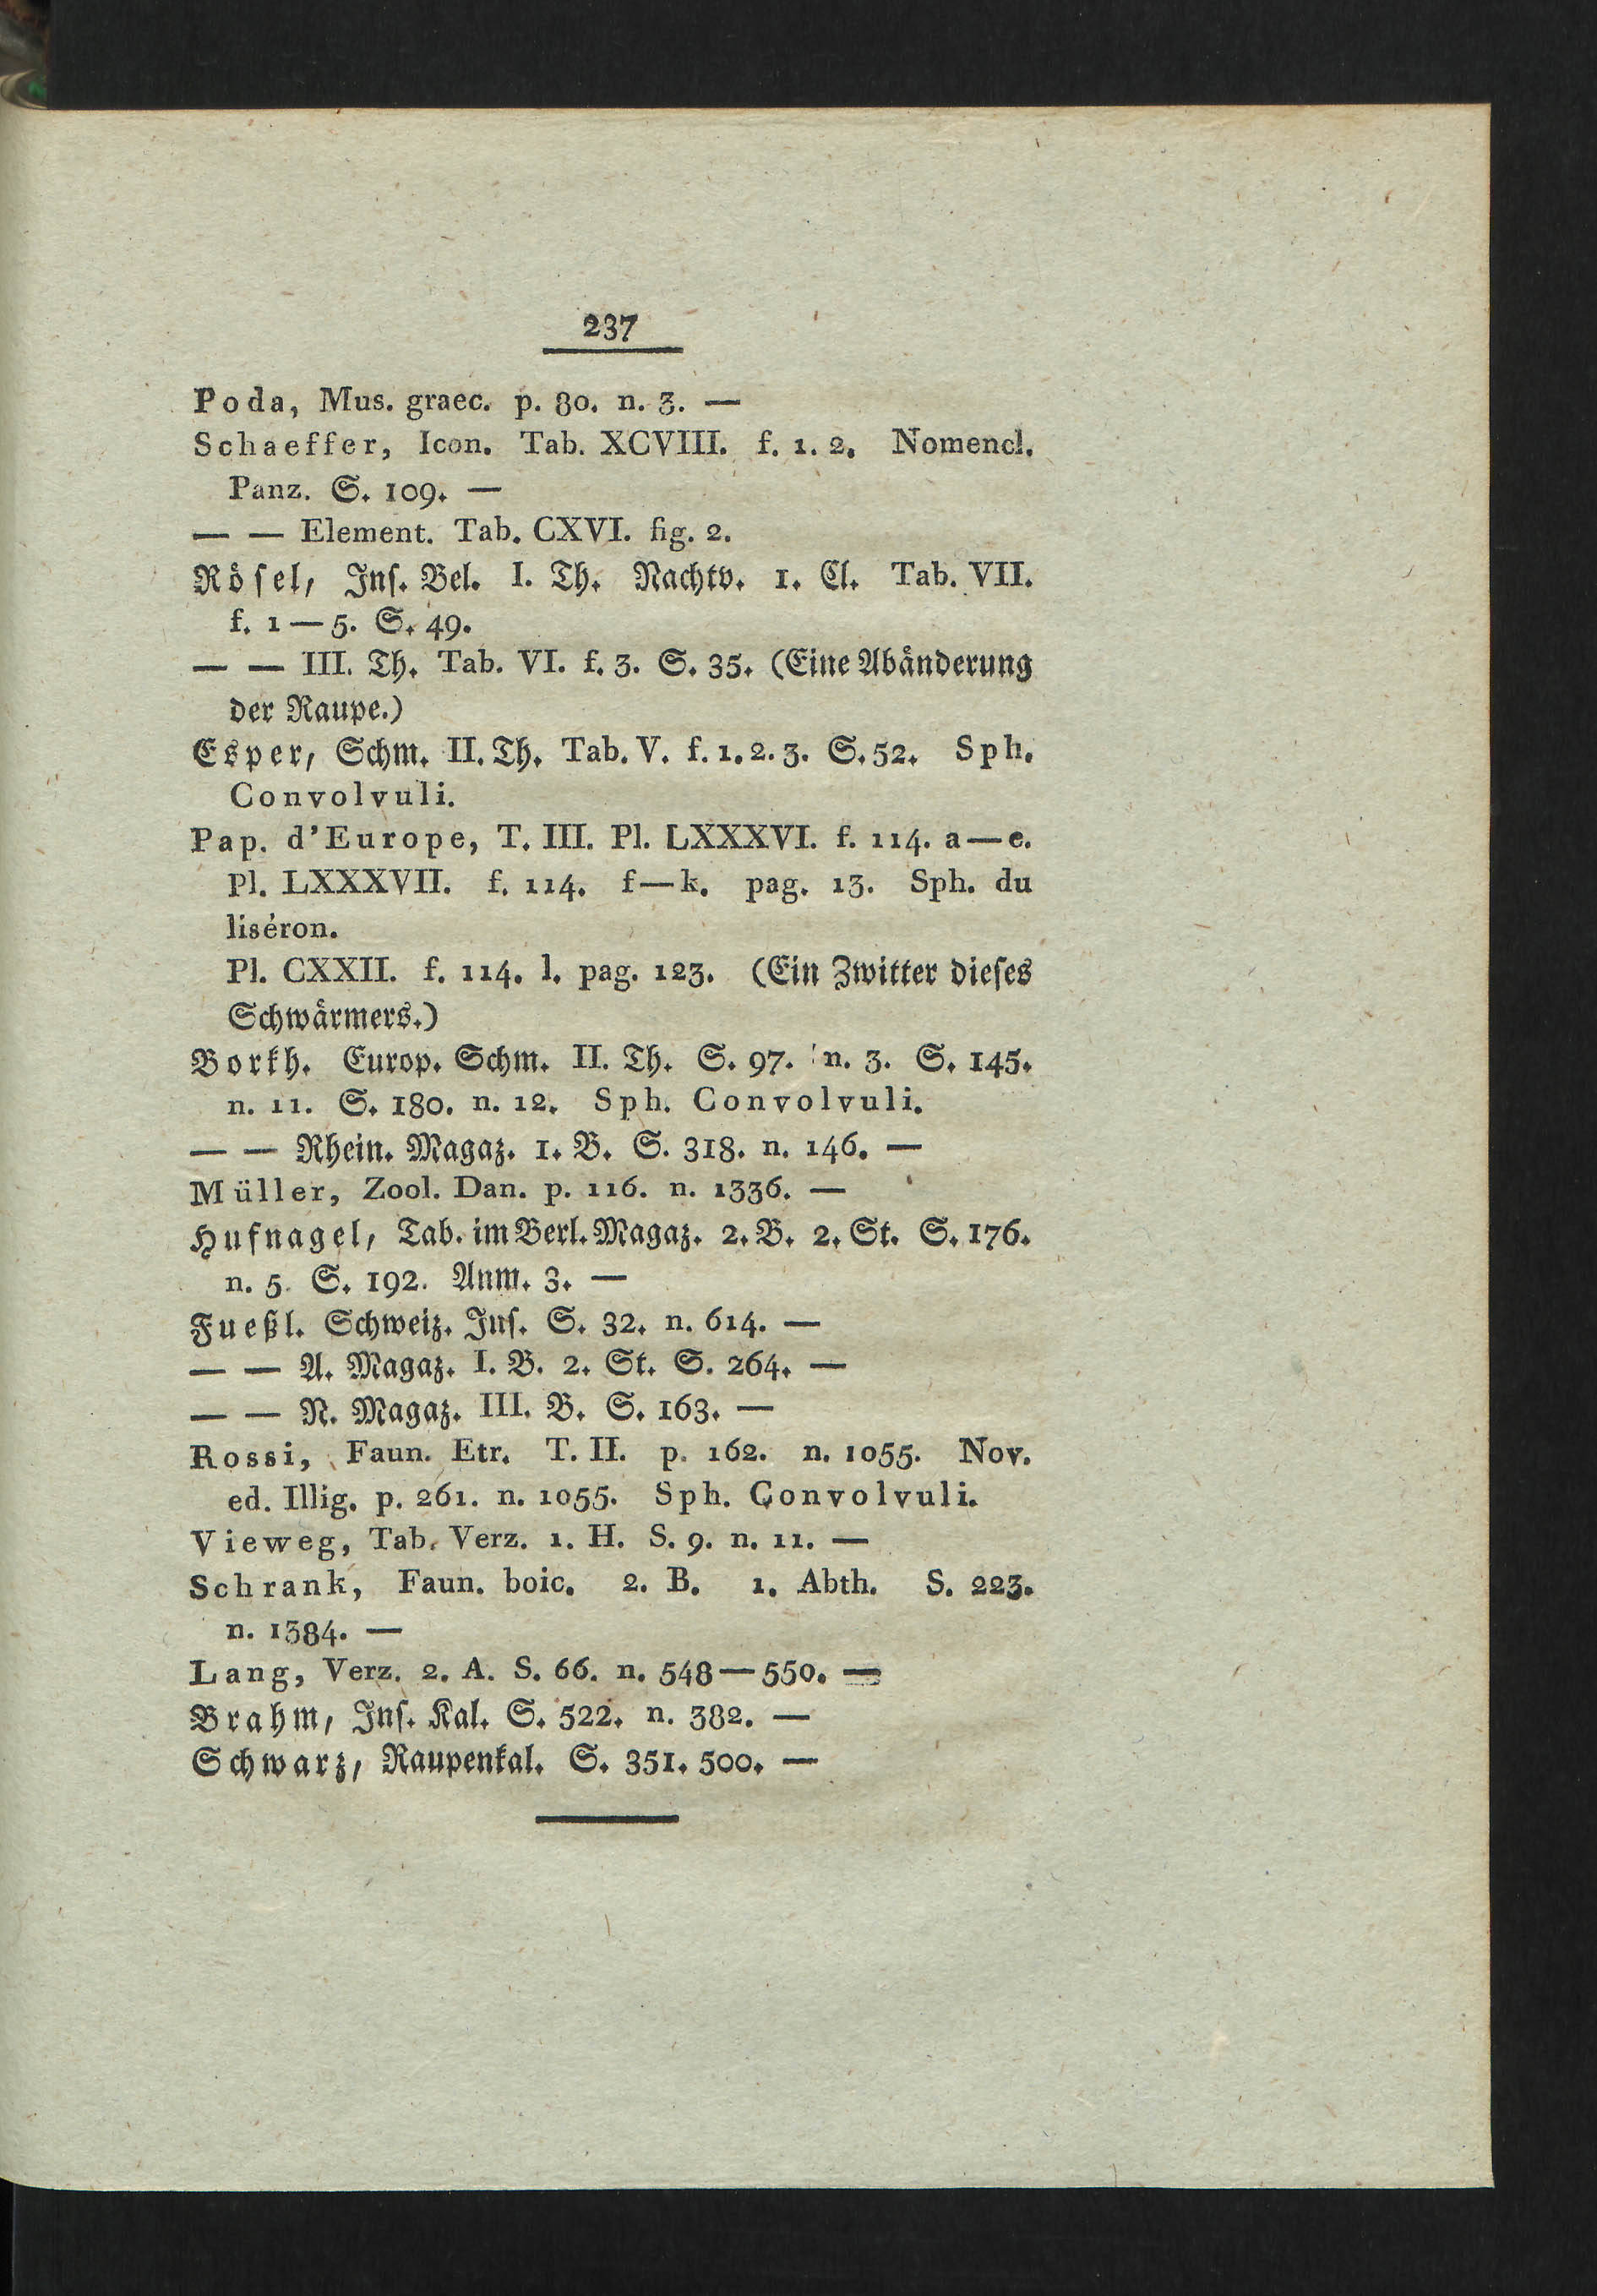 237
Poda, Mus. graec. p. 80. n. 3. —
Schaeffer, Icon. Tab. XCVIII. f. 1. 2. Nomencl.
Panz. S. 109. —
— — Element. Tab. CXVI. fig. 2.
Rösel, Ins. Bel. I. Th. Nachtv. 1. Cl. Tab. VII.
f. 1 — 5. S. 49.
— — III. Th. Tab. VI. f. 3. S. 35. (Eine Abänderung
der Raupe.)
Esper, Schm. II. Th. Tab. V. f. 1. 2. 3. S. 52. Sph.
Convolvuli.
Pap. d'Europe, T. III. Pl. LXXXVI. f. 114. a — e.
Pl. LXXXVII. f. 114. f — k. pag. 13. Sph. du
liséron.
Pl. CXXII. f. 114. l. pag. 123. (Ein Zwitter dieses
Schwärmers.)
Borkh. Europ. Schm. II. Th. S. 97. n. 3. S. 145.
n. 11. S. 180. n. 12. Sph. Convolvuli.
— — Rhein. Magaz. 1. B. S. 318. n. 146. —
Müller, Zool. Dan. p. 116. n. 1336. —
Hufnagel, Tab. im Berl. Magaz. 2. B. 2. St. S. 176.
n. 5. S. 192. Anm. 3. —
Fueßl. Schweiz. Ins. S. 32. n. 614. —
— — A. Magaz. I. B. 2. St. S. 264. —
— — N. Magaz. III. B. S. 163. —
Rossi, Faun. Etr. T. II. p. 162. n. 1055. Nov.
ed. Illig. p. 261. n. 1055. Sph. Convolvuli.
Vieweg, Tab. Verz. 1. H. S. 9. n. 11. —
Schrank, Faun. boic. 2. B. 1. Abth. S. 223.
n. 1384. —
Lang, Verz. 2. A. S. 66. n. 548 — 550. —
Brahm, Ins. Kal. S. 522. n. 382. —
Schwarz, Raupenkal. S. 351. 500. —